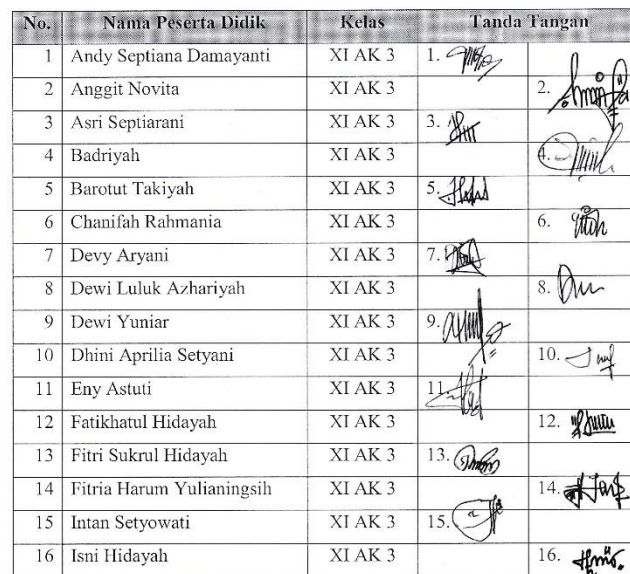 No. Nama Peserta Didik Kelas Tanda Tangan
1 Andy Septiana Damayanti XI AK 3 1.
2 Anggit Novita XI AK 3 2.
3 Asri Septiarani XI AK 3 3.
4 Badriyah XI AK 3 4.
5 Barotut Takiyah XI AK 3 5.
6 Chanifah Rahmania XI AK 3 6.
7 Devy Aryani XI AK 3 7.
8 Dewi Luluk Azhariyah XI AK 3 8.
9 Dewi Yuniar XI AK 3 9.
10 Dhini Aprilia Setyani XI AK 3 10.
11 Eny Astuti XI AK 3 11.
12 Fatikhatul Hidayah XI AK 3 12.
13 Fitri Sukrul Hidayah XI AK 3 13.
14 Fitria Harum Yulianingsih XI AK 3 14.
15 Intan Setyowati XI AK 3 15.
16 Isni Hidayah XI AK 3 16.